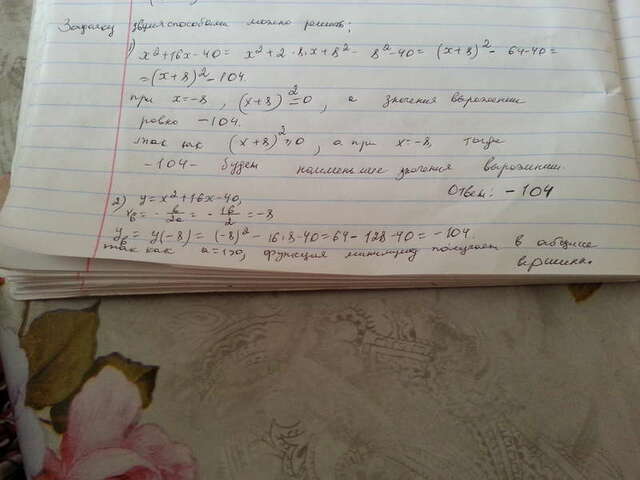 Задачу двумя способами можно решить;
1) x²+16x-40= x²+2·8·x+8²- 8²-40= (x+8)²- 64-40=
=(x+8)²-104.
при x=-8, (x+8)²=0, а значения выражении
ровно -104.
так как (x+8)²≥0, а при x=-8, тогда
-104- будет наименьшее значения выражении.
Ответ: -104
2) y=x²+16x-40,
xв=-b/2a=-16/2=-8
yв= y(-8)= (-8)²-16·8-40=64-128-40=-104.
так как a=1>0, функция минимум получает в абциссе
вершина.